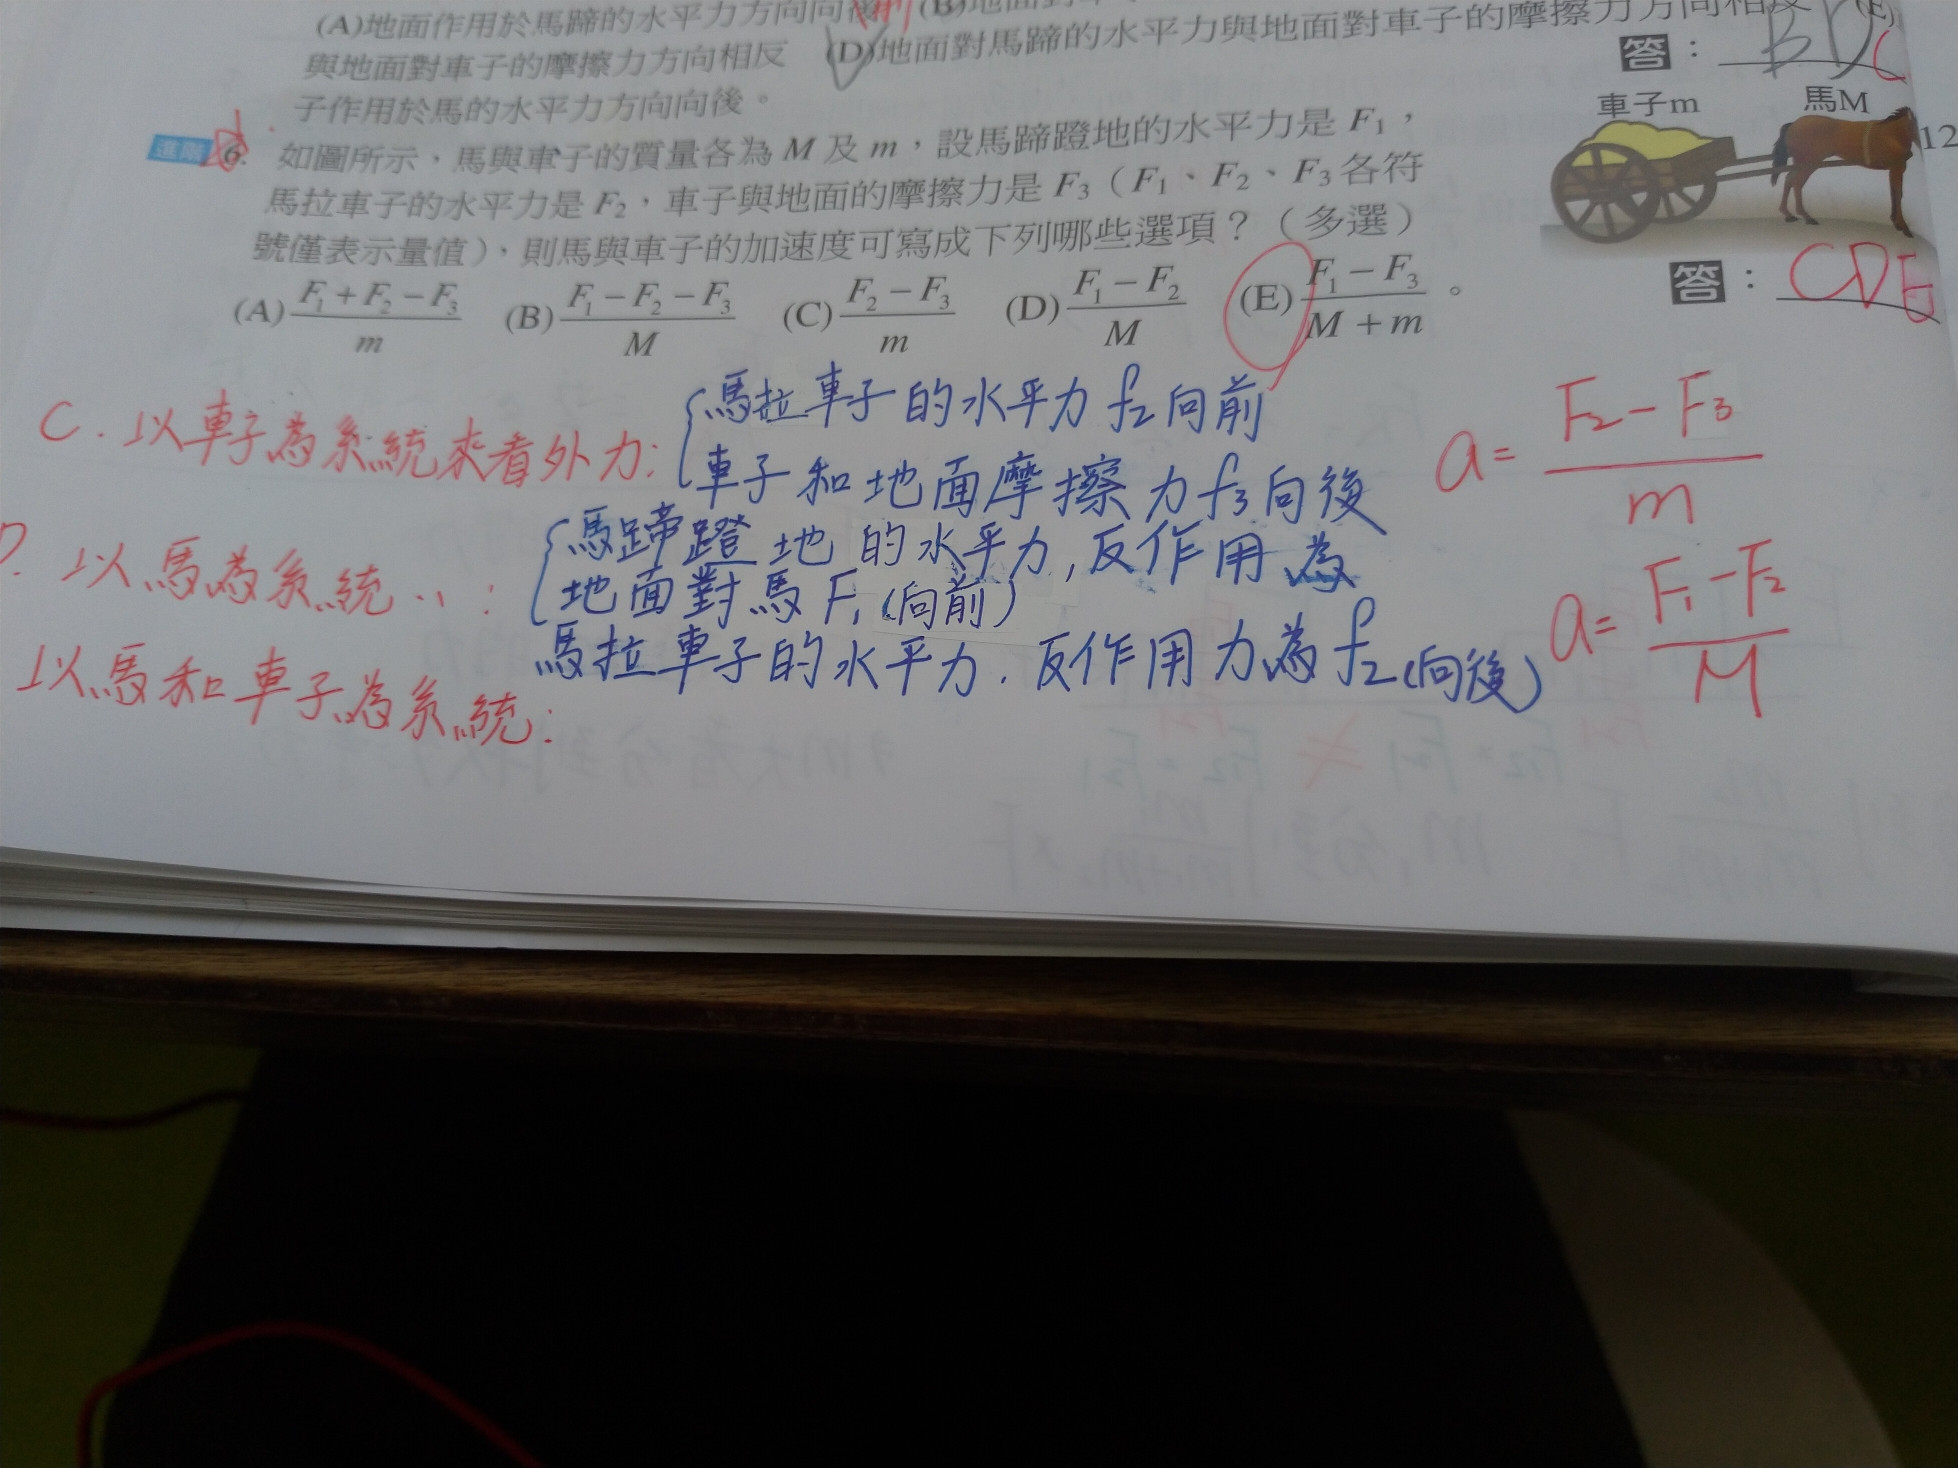 (A)地面作用於馬蹄的水平力方向向
與地面對車子的摩擦力方向相反 (D)地面對馬蹄的水平力與地面對車子的摩擦力方向相反 (E)
子作用於馬的水平力方向向後。
答： BDC
進階 6. 如圖所示，馬與車子的質量各為 M 及 m，設馬蹄蹬地的水平力是 F₁，
馬拉車子的水平力是 F₂，車子與地面的摩擦力是 F₃（F₁、F₂、F₃各符
號僅表示量值），則馬與車子的加速度可寫成下列哪些選項？（多選）
車子m 馬M
12
(A) (F₁ + F₂ − F₃)/m (B) (F₁ − F₂ − F₃)/M (C) (F₂ − F₃)/m (D) (F₁ − F₂)/M (E) (F₁ − F₃)/(M + m) 。
答： CDE
C. 以車子為系統來看外力: { 馬拉車子的水平力 f₂ 向前
車子和地面摩擦力 f₃ 向後
a = (F₂ − F₃)/m
D. 以馬為系統..: { 馬蹄蹬地的水平力, 反作用為
地面對馬 F₁ (向前)
馬拉車子的水平力. 反作用力為 f₂ (向後)
a = (F₁ − F₂)/M
以馬和車子為系統: